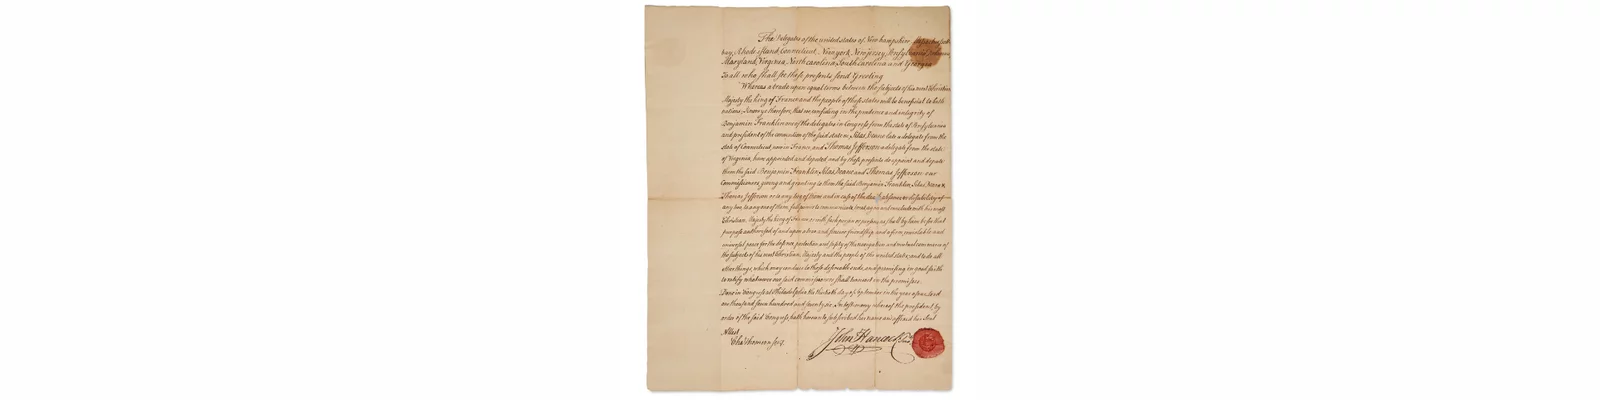 The Delegates of the united states of Newhampshire, Massachusetts
bay, Rhode island, Connecticut, Newyork, Newjersey, Pensylvania, Delaware
Maryland, Virginia, North carolina, South carolina and Georgia
To all who shall see these presents send Greeting
Whereas a trade upon equal terms between the subjects of his most Christian
Majesty the king of France and the people of these states will be beneficial to both
nations, Know ye therefore, that we confiding in the prudence and integrity of
Benjamin Franklin one of the delegates in Congress from the state of Pensylvania
and president of the convention of the said state &c Silas Deane late a delegate from the
state of Connecticut, now in France, and Thomas Jefferson a delegate from the state
of Virginia, have appointed and deputed and by these presents do appoint and depute
them the said Benjamin Franklin, Silas Deane and Thomas Jefferson our
Commissioners, giving and granting to them the said Benjamin Franklin, Silas Deane &
Thomas Jefferson or to any two of them and in case of the death, absence or disability of
any two, to any one of them, full power to communicate, treat agree and conclude with his most
Christian Majesty the king of France or with such person or persons, as shall by him be for that
purpose authorised of and upon a true and sincere friendship, and a firm, inviolable and
universal peace for the defence, protection and safety of the navigation and mutual commerce of
the subjects of his most Christian Majesty and the people of the united states, and to do all
other things, which may conduce to those desireable ends, and promising in good faith
to ratify whatsoever our said commissioners shall transact in the premisses.
Done in Congress at Philadelphia the thirtieth day of September in the year of our Lord
one thousand seven hundred and seventy six. In testimony whereof the president by
order of the said Congress hath hereunto subscribed his name and affixed his Seal
Attest
Cha Thomson secy
John Hancock